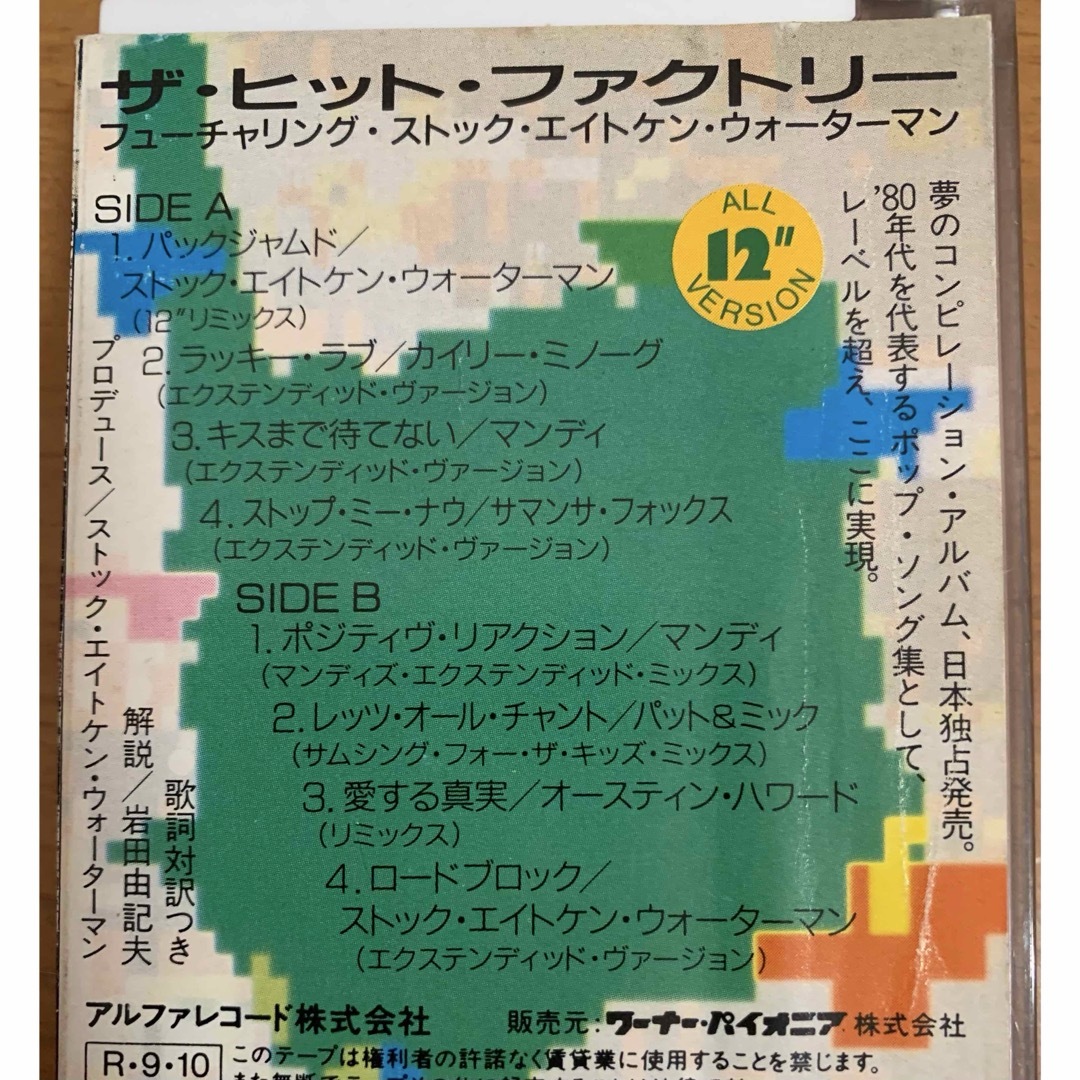 ザ・ヒット・ファクトリー
フューチャリング・ストック・エイトケン・ウォーターマン
ALL
12"
VERSION
夢のコンピレーション・アルバム、日本独占発売。
'80年代を代表するポップ・ソング集として、
レーベルを超え、ここに実現。
SIDE A
1. パックジャムド／
ストック・エイトケン・ウォーターマン
(12"リミックス)
2. ラッキー・ラブ／カイリー・ミノーグ
(エクステンディッド・ヴァージョン)
3. キスまで待てない／マンディ
(エクステンディッド・ヴァージョン)
4. ストップ・ミー・ナウ／サマンサ・フォックス
(エクステンディッド・ヴァージョン)
SIDE B
1. ポジティヴ・リアクション／マンディ
(マンディズ・エクステンディッド・ミックス)
2. レッツ・オール・チャント／パット&ミック
(サムシング・フォー・ザ・キッズ・ミックス)
3. 愛する真実／オースティン・ハワード
(リミックス)
4. ロードブロック／
ストック・エイトケン・ウォーターマン
(エクステンディッド・ヴァージョン)
歌詞対訳つき
解説／岩田由記夫
プロデュース／ストック・エイトケン・ウォーターマン
アルファレコード株式会社 販売元：ワーナー・パイオニア株式会社
R・9・10
このテープは権利者の許諾なく賃貸業に使用することを禁じます。